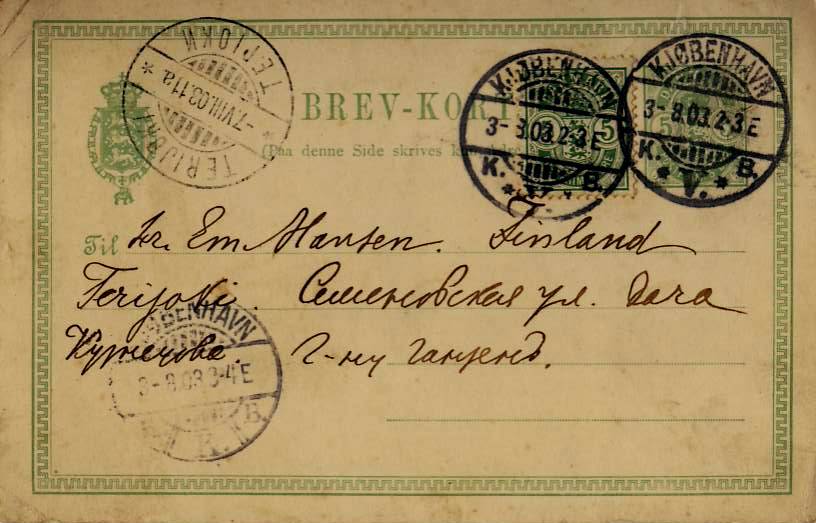 ТЕРІОКИ
TERIJOKI
* -7.VIII.03.11a. *
KJØBENHAVN
3-8.03.2-3E
K. B.
* V. *
KJØBENHAVN
3-8.03.2-3E
K. B.
* V. *
BREV-KORT
5 5
(Paa denne Side skrives kun
Til Hr. Em Hansen. Finland
Terijoki. Семеновская ул. Дача
Кузнецова. Г-ну Ганзенъ.
KJØBENHAVN
3-8.03 3-4E
K. B.